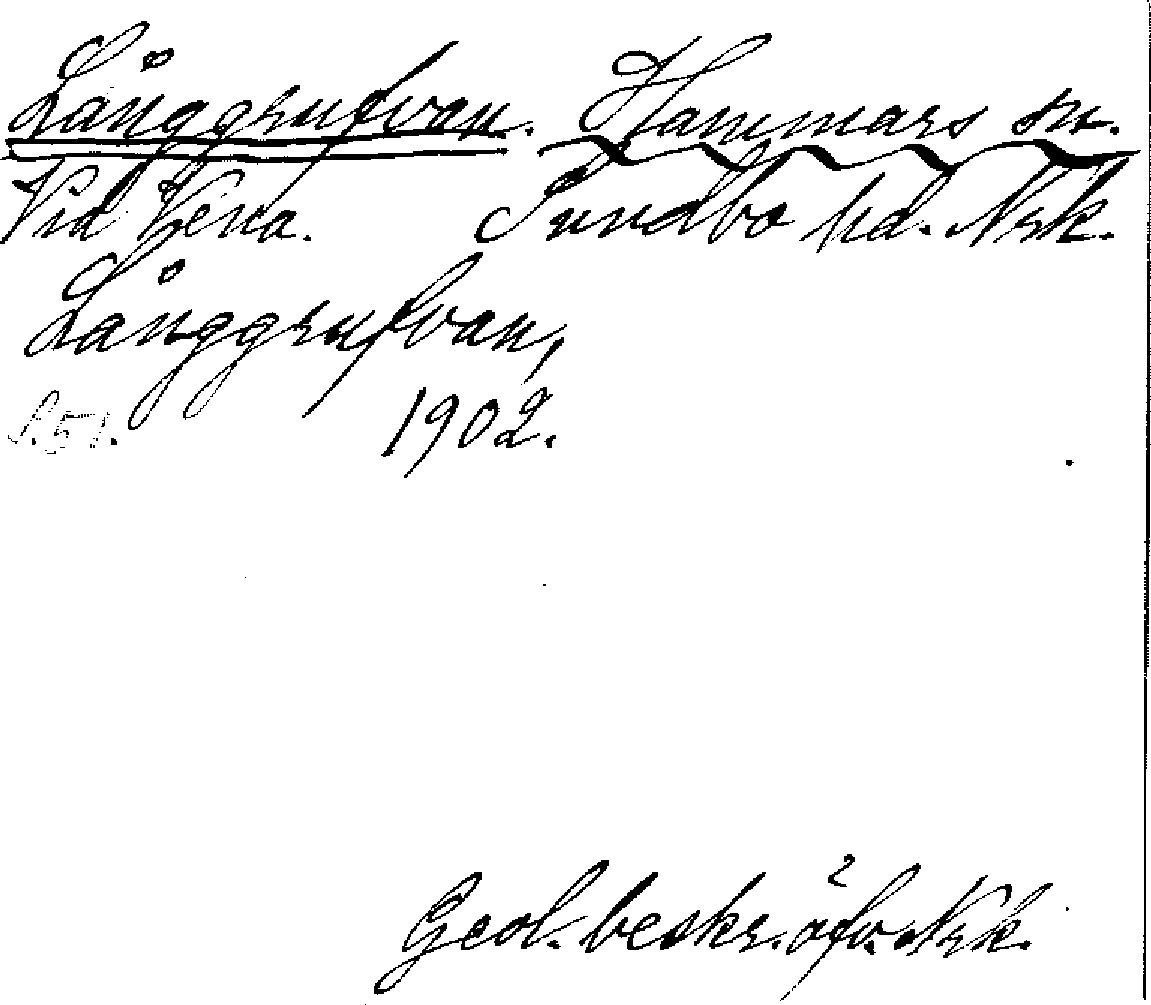 Långgrufvan. Hammars sn.
Vid Vena. Sundbo hd. Nrk.
Långgrufvan,
S. 51. 1902.
Geol. beskr. öfv. Nrk.